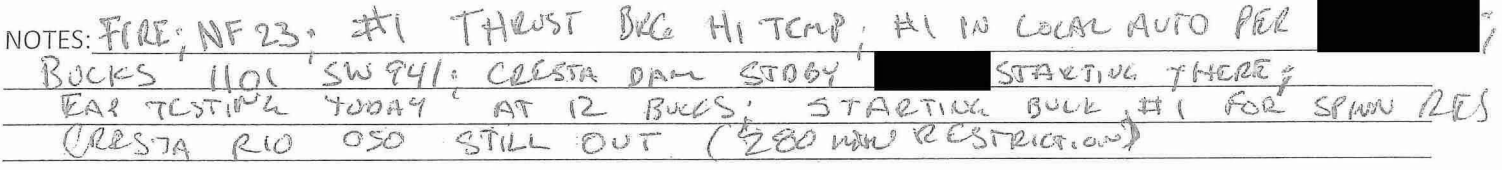 NOTES: FIRE; NF 23; #1 THRUST BRG HI TEMP; #1 IN LOCAL AUTO PER ;
BUCKS 1101 SW 941; CRESTA DAM STDBY STARTING THERE;
EAP TESTING TODAY AT 12 BUCKS; STARTING BULK #1 FOR SPINN RES
CRESTA RIO OSO STILL OUT (280 MW RESTRICTION)